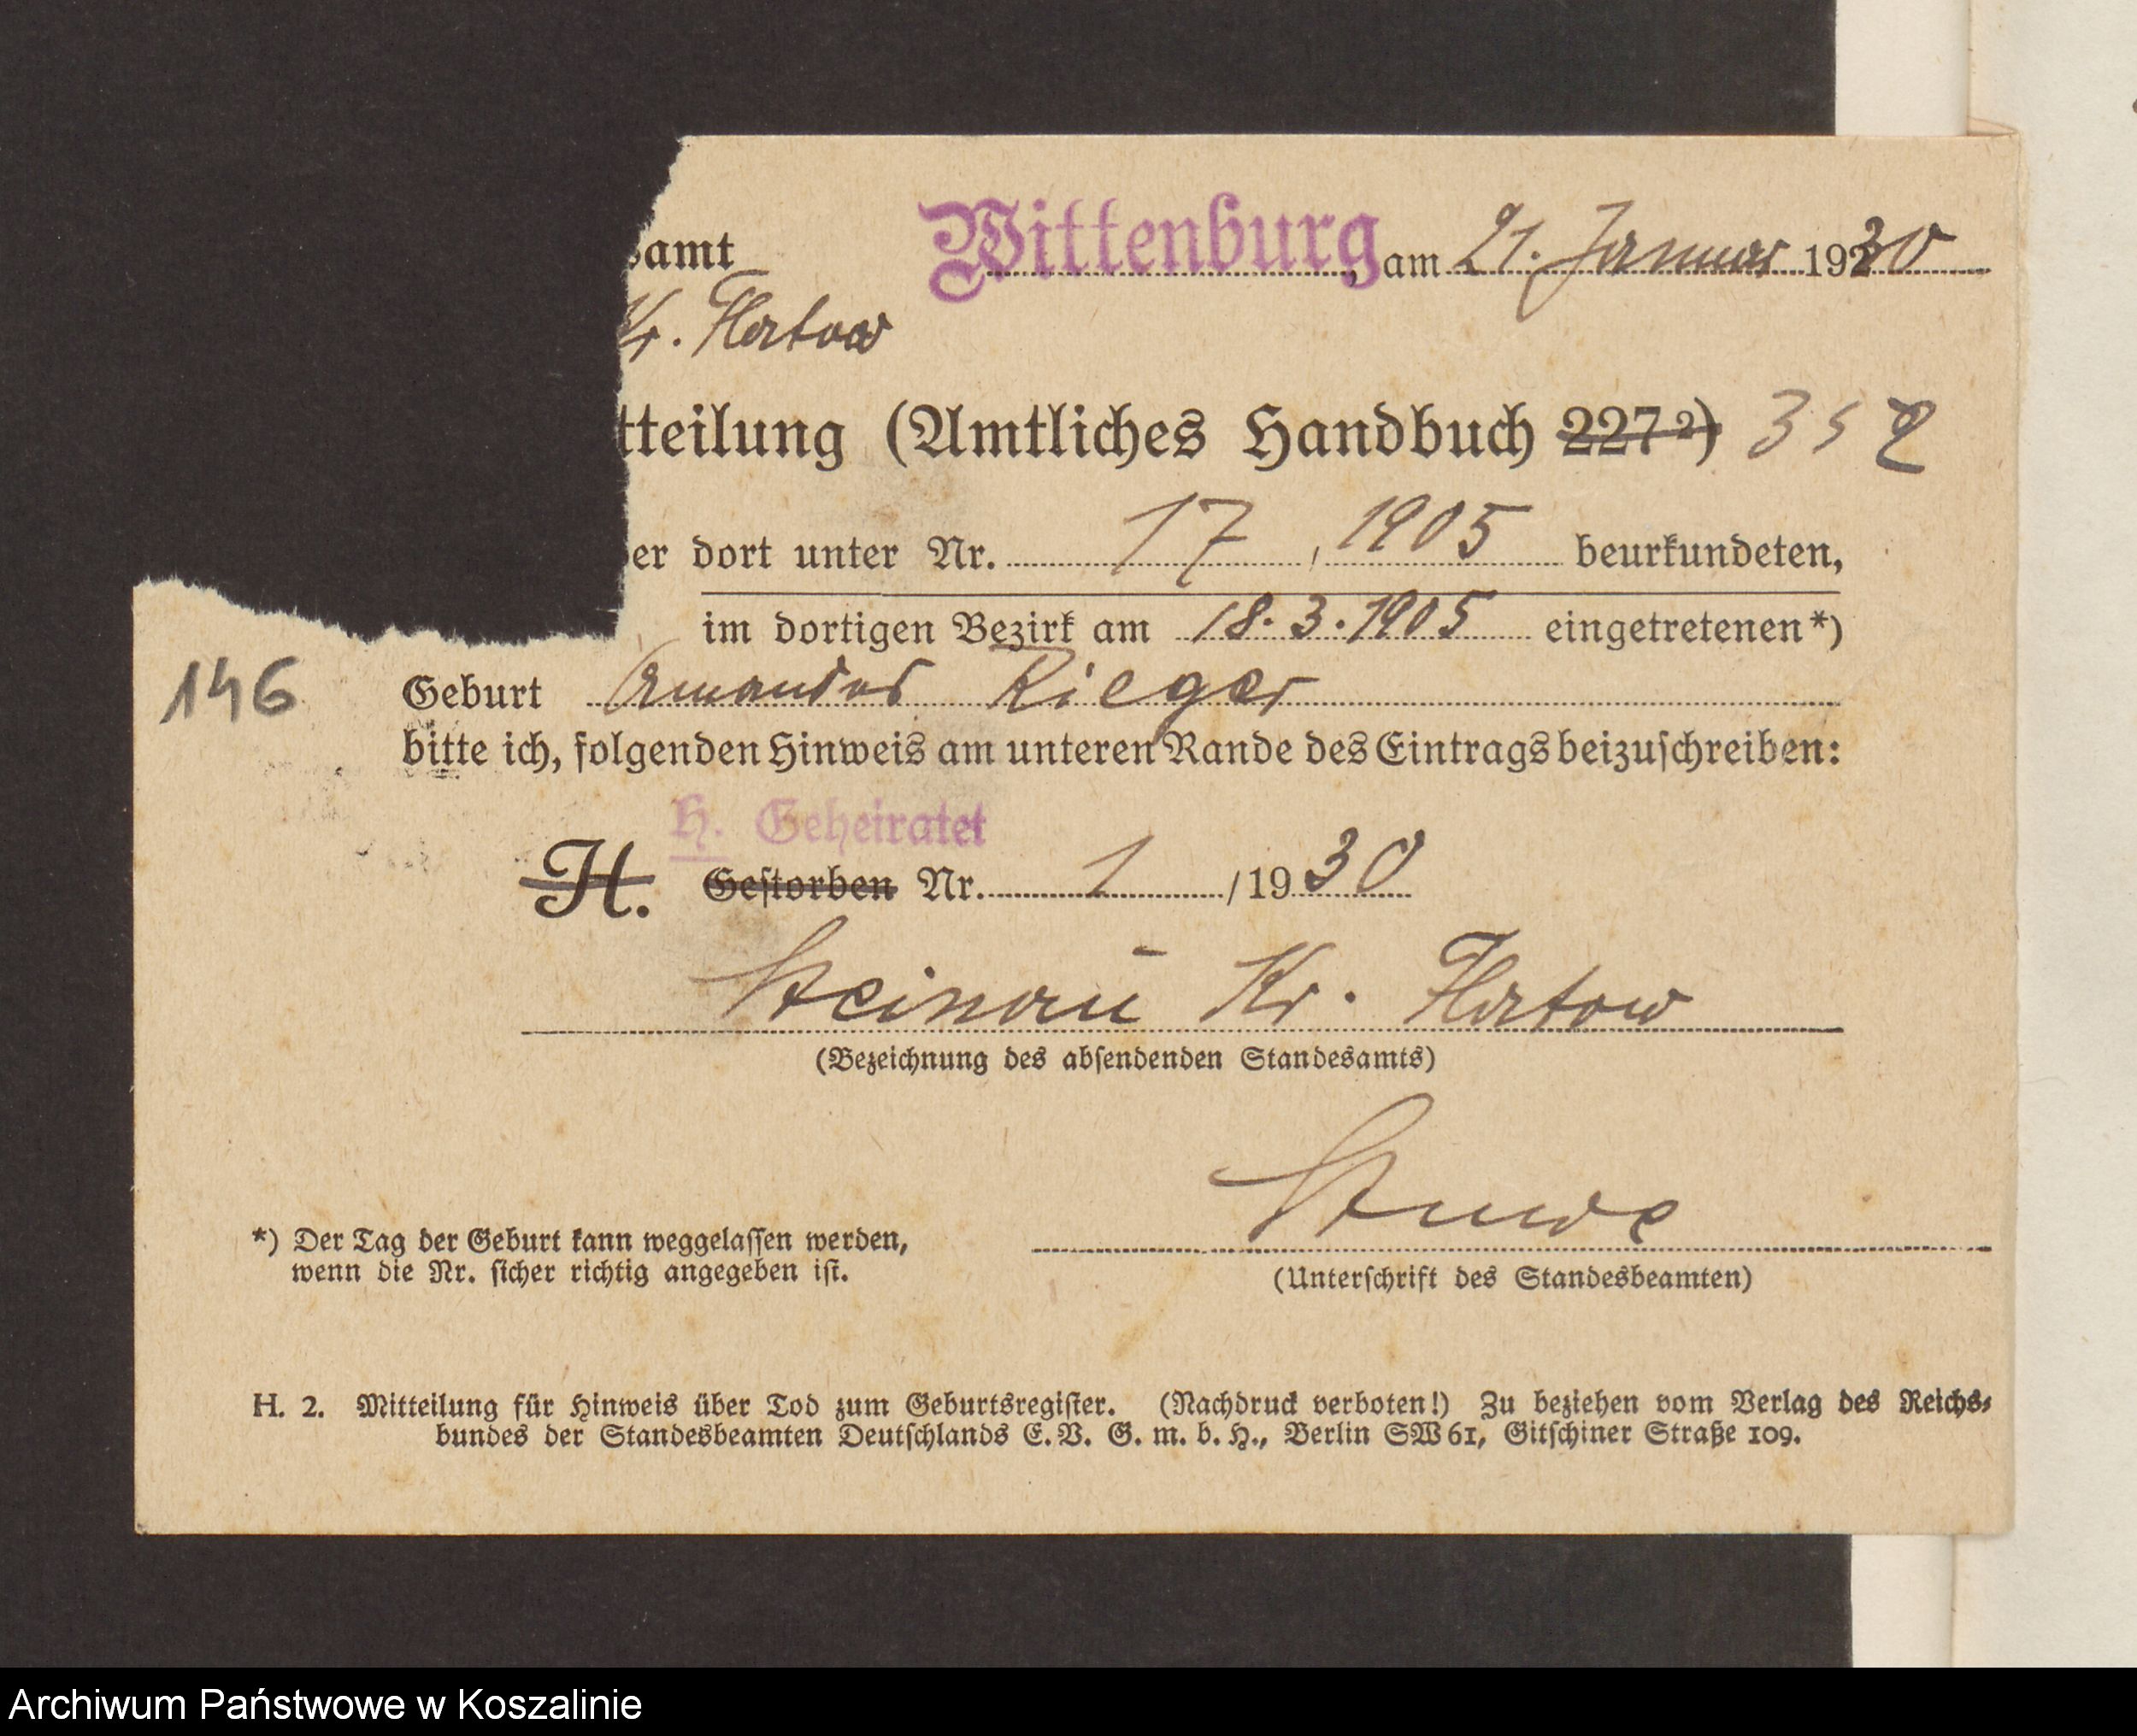 samt Wittenburg, am 21. Januar 1930
Kr. Flatow
tteilung (Amtliches Handbuch 227 2) 352
er dort unter Nr. 17, 1905 beurkundeten,
im dortigen Bezirk am 18.3.1905 eingetretenen *)
146 Geburt Rieger
bitte ich, folgenden Hinweis am unteren Rande des Eintrags beizuschreiben:
H. Geheiratet
H. Gestorben Nr. 1 / 1930
Steinau Kr. Flatow
(Bezeichnung des absendenden Standesamts)
*) Der Tag der Geburt kann weggelassen werden,
wenn die Nr. sicher richtig angegeben ist.
(Unterschrift des Standesbeamten)
H. 2. Mitteilung für Hinweis über Tod zum Geburtsregister. (Nachdruck verboten!) Zu beziehen vom Verlag des Reichs-
bundes der Standesbeamten Deutschlands E. V. G. m. b. H., Berlin SW 61, Gitschiner Straße 109.
Archiwum Państwowe w Koszalinie